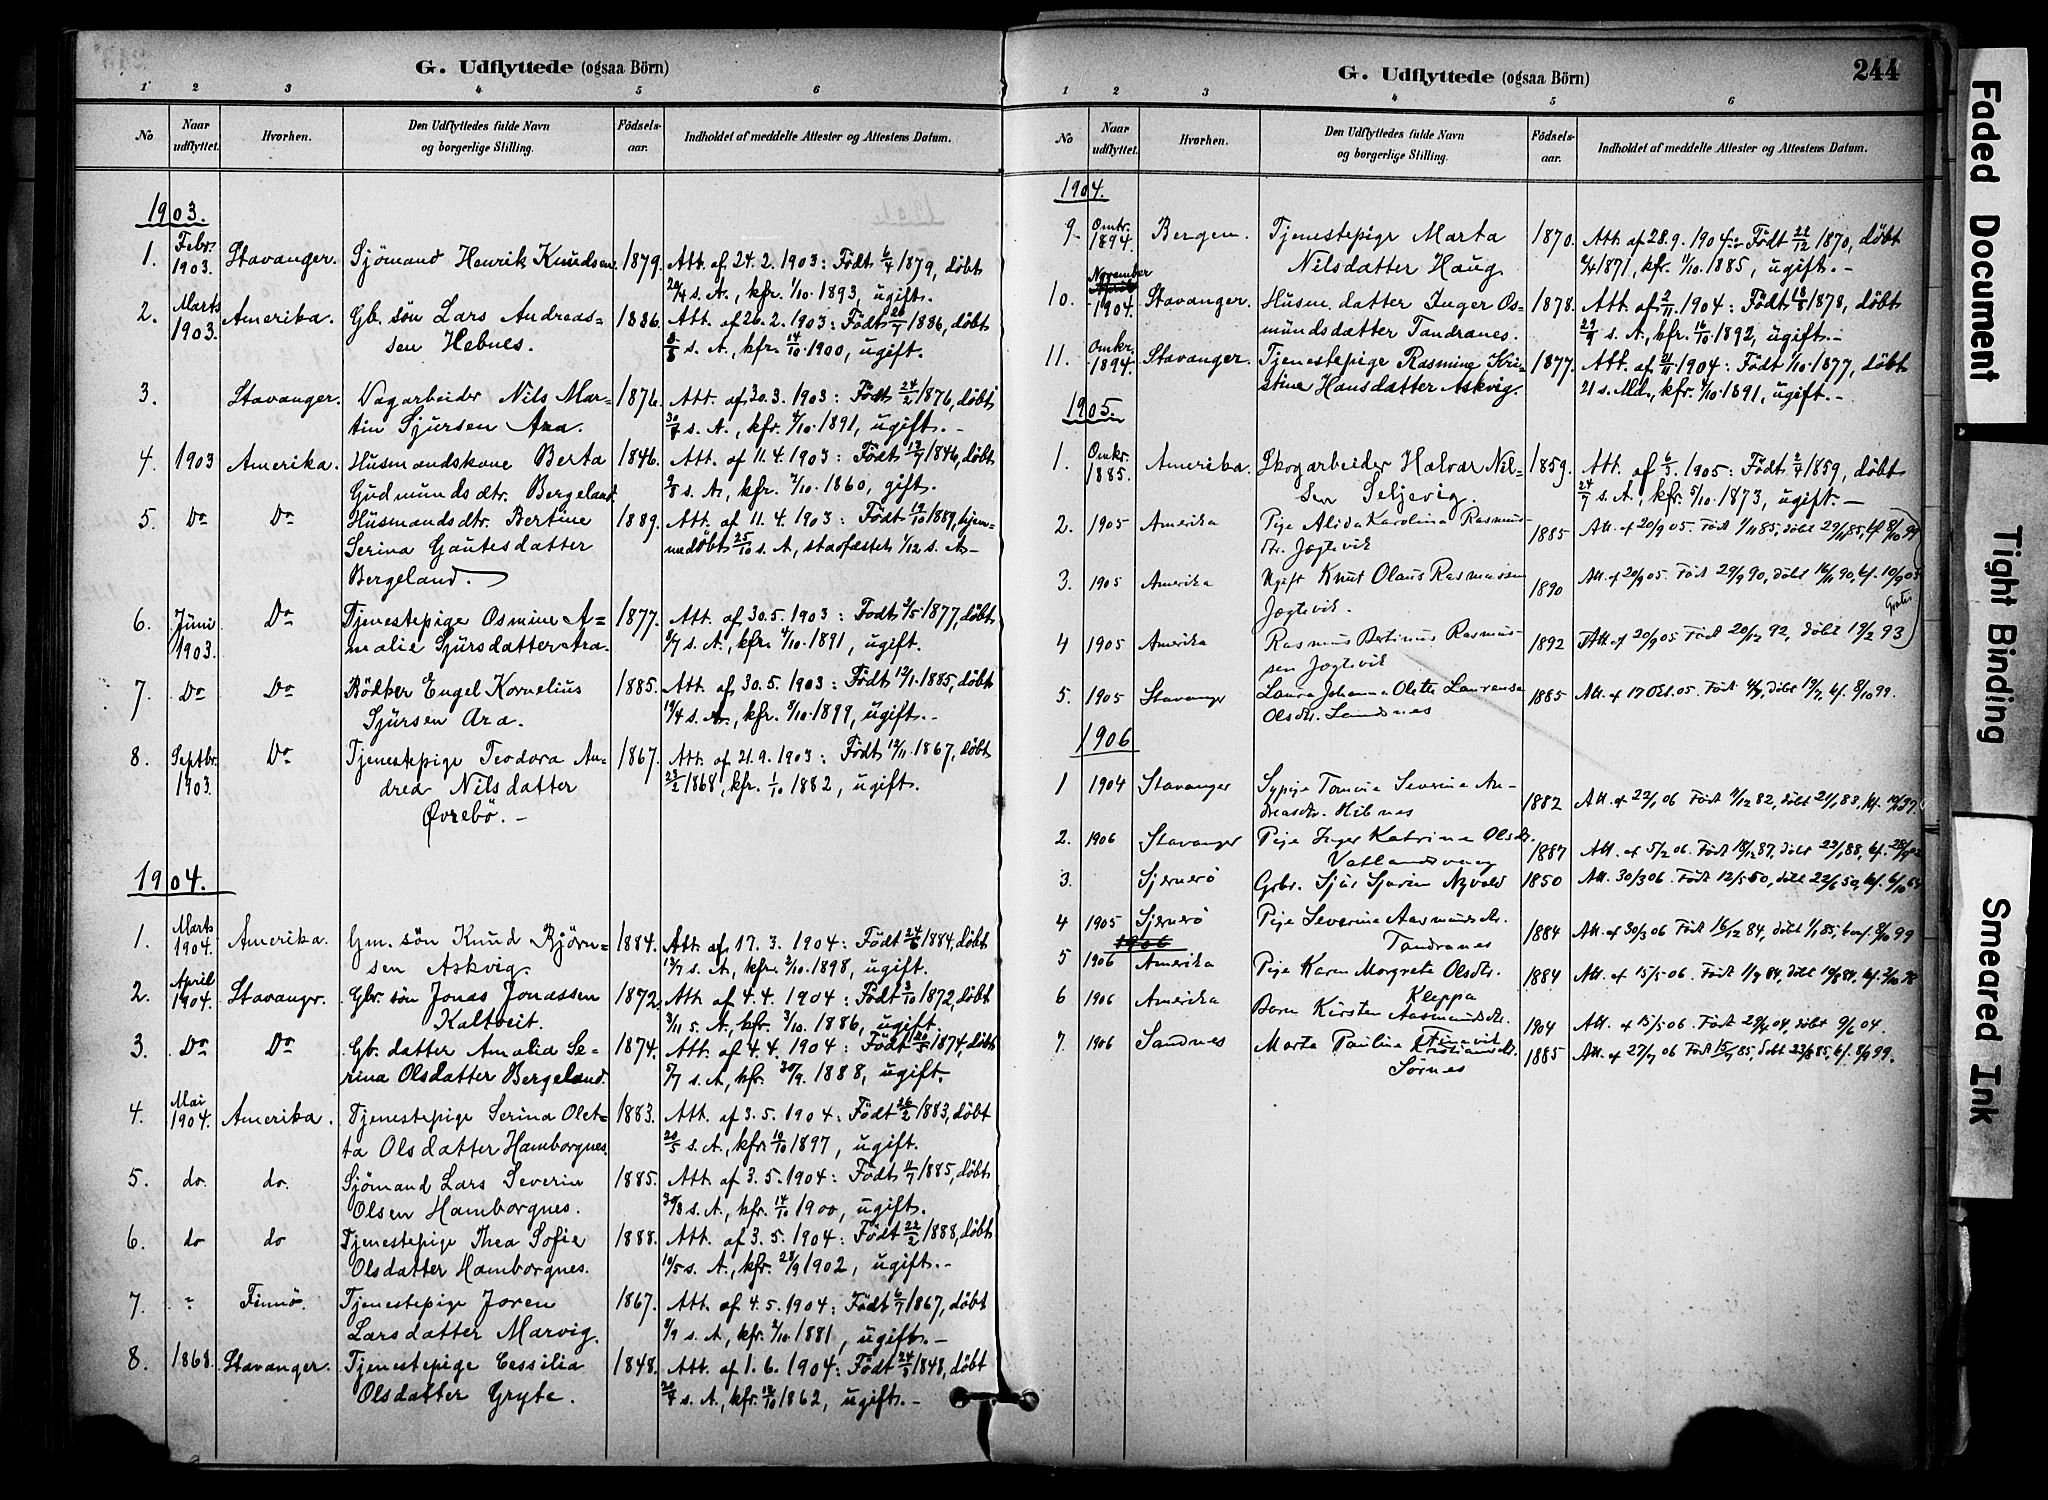 G. Udflyttede (ogsaa Börn)
1 2 3 4 5 6
No
Naar udflyttet.
Hvorhen.
Den Udflyttedes fulde Navn og borgerlige Stilling.
Födsels-aar.
Indholdet af meddelte Attester og Attestens Datum.
1903.
1. Febr. 1903. Stavanger. Sjömand Henrik Knudsen. 1879. Att. af 24. 2. 1903: Födt 6/4 1879, döbt
20/4 s. A., kfr. 1/10. 1893, ugift.
2. Marts 1903. Amerika. Gb. sön Lars Andreas- 1886. Att. af 26. 2. 1903: Födt 1886, döbt
sen Hebnes. s. A., kfr. 14/10 1900, ugift.
3. Stavanger. Vagarbeider Nils Mar- 1876. Att. af 30. 3. 1903: Födt 24/2 1876, döbt
tin Sjursen Ara. 30/4 s. A., kfr. 1891, ugift. -
4. 1903 Amerika. Husmandskone Berta 1846. Att. af 11. 4. 1903: Födt 1846, döbt
Gudmundsdtr. Bergeland. s. A., kfr. 1860, gift.
5. Do Do Husmandsdtr. Bertine 1889. Att. af 11. 4. 1903: Födt 19/10 1889, hjem-
Serina Gautesdatter medöbt 25/10 s. A, stadfæstet 1/12 s. A -
Bergeland.
6. Juni 1903. Do Tjenestepige Osmine A- 1877. Att. af 30. 5. 1903: Födt 1877, döbt
malie Sjursdatter Ara. s. A., kfr. 4/10. 1891, ugift.
7. Do Do Bödker Engel Kornelius 1885. Att. af 30. 5. 1903: Födt 12/1. 1885, döbt
Sjursen Ara. 19/4 s. A., kfr. 8/10. 1899, ugift. -
8. Septbr. 1903. Do Tjenestepige Teodora An- 1867. Att. af 21. 9. 1903: Födt 12/11. 1867, döbt
drea Nilsdatter 23/2 1868, kfr. 1/10 1882, ugift.
Övrebö. -
1904.
1. Marts 1904. Amerika. Gm. sön Knud Bjørn- 1884. Att. af 17. 3. 1904: Födt 24/6 1884, döbt
sen Askvig. 13/7 s. A., kfr. 2/10. 1898, ugift.
2. April 1904. Stavanger. Gbr. sön Jonas Jonassen 1872. Att. af 4. 4. 1904: Födt 3/10 1872, döbt
Kaltveit. 3/11 s. A., kfr. 3/10. 1886, ugift.
3. Do Do Gb. datter Amalia Se- 1874. Att. af 4. 4. 1904: Födt 20/5 1874, döbt
rina Olsdatter Bergeland. 5/7 s. A, kfr. 30/9. 1888, ugift.
4. Mai 1904. Amerika. Tjenestepige Serina Olet- 1883. Att. af 3. 5. 1904: Födt 26/2 1883, döbt
ta Olsdatter Hamborgnes. 20/5 s. A., kfr. 10/10 1897, ugift.
5. do. do. Sjömand Lars Severin 1885. Att. af 3. 5. 1904: Födt 1885, döbt
Olsen Hamborgnes. 30/8 s. A., kfr. 14/10 1900, ugift.
6. do do Tjenestepige Thea Sofie 1888. Att. af 3. 5. 1904: Födt 22/2 1888, döbt
Olsdatter Hamborgnes. 10/5 s. A., kfr. 28/9 1902, ugift. -
7. - Finnö. Tjenestepige Joren 1867. Att. af 4. 5. 1904: Födt 6/7 1867, döbt
Larsdatter Marvig. s. A, kfr. 2/10. 1881, ugift. -
8. 1868. Stavanger. Tjenestepige Cessilia 1848. Att. af 1. 6. 1904: Födt 24/3 1848, döbt
Olsdatter Gryte. s. A., kfr. 12/10 1862, ugift. -
G. Udflyttede (ogsaa Börn)
244
1 2 3 4 5 6
No
Naar udflyttet.
Hvorhen.
Den Udflyttedes fulde Navn og borgerlige Stilling.
Födsels-aar.
Indholdet af meddelte Attester og Attestens Datum.
1904.
9. Omtr. 1894. Bergen. Tjenestepige Marta 1870. Att. af 28. 9. 1904: Födt 22/12 1870, döbt
Nilsdatter Haug. 1871, kfr. 11/10. 1885, ugift. -
10. November 1904. Stavanger. Husm. datter Inger Os- 1878. Att. af 2/11. 1904: Födt 18/8 1878, döbt
mundsdatter Tandranes. 29/9 s. A., kfr. 16/10 1892, ugift. -
11. Omkr. 1894. Stavanger. Tjenestepige Rasmine Kri- 1877. Att. af 21/11 1904: Födt 1/10. 1877, döbt
stine Hansdatter Askvig. 21 s. Md., kfr. 4/10. 1891, ugift. -
1905.
1. Omkr. 1885. Amerika. Skogarbeider Halvar Nil- 1859. Att. af 1905: Födt 2/4 1859, döbt
sen Seljevig. 24/7 s. A., kfr. 5/10. 1873, ugift. -
2. 1905 Amerika Pige Alida Karolina Rasmus- 1885 Att. af 20/9 05. Födt 1/11 85, döbt 29/11 85, kf. 8/10 99
dtr. Jogtevik
3. 1905 Amerika Ugift Knut Olaus Rasmussen 1890 Att. af 20/9 05. Födt 29/9 90, döbt 16/11 90, kf. 10/9 05
Jogtevik. Gratis
4 1905 Amerika Rasmus Bertinus Rasmus- 1892 Att. af 20/9 05 Födt 20/12 92, döbt 19/2 93
sen Jogtevik
5. 1905 Stavanger Laura Johanna Olette Laurensa 1885 Att. af 17 Okt. 05. Födt döbt 19/7, kf. 8/10 99.
Olsdtr. Sandnes
1906
1 1904 Stavanger Sypige Tomine Severine An- 1882 Att. af 22/1 06 Födt 9/12 82, döbt 21/1 83, kf. 10/10 97.
dreasdtr. Hebnes
2. 1906 Stavanger Pige Inger Katrine Olsdtr. 1887 Att. af 5/2 06. Födt 18/12 87, döbt 22/1 88, kf. 28/9 02
Vatlandsvaag
3. Sjernerö Grbr. Sjur Sjursen Nyvold 1850 Att. 30/3 06. Födt 12/5 50, döbt 22/6 50, kf. 6/10 64
4 1905 Sjernerö Pige Severine Aasmundsdtr. 1884 Att. af 30/3 06 Födt 16/12 84, döbt 1/1 85, konf. 8/10 99
Tandranes
1906
5 1906 Amerika Pige Karen Margrete Olsdtr. 1884 Att. af 15/5 06. Födt 1/7 84, döbt 10/8 84, kf. 2/10 98
Kleppa
6 1906 Amerika Barn Kirsten Aasmundsdtr. 1904 Att. af 15/5 06. Födt 29/4 04, döbt 9/6 04.
7. 1906 Sandnes Marta Pauline Kristiansdtr. 1885 Att. af 27/7 06 Födt 15/7 85, döbt 23/8 85, kf. 8/9 99.
Sørnes
Faded Document
Tight Binding
Smeared Ink